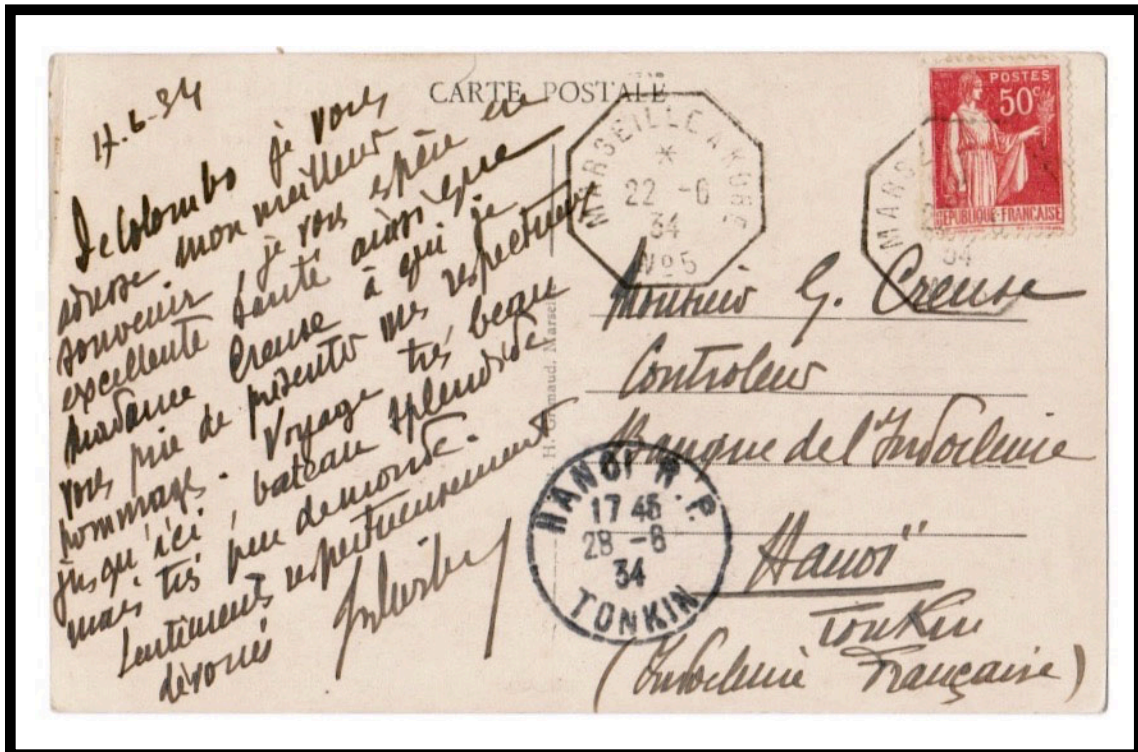 CARTE POSTALE
17-6-34
De Colombo je vous
adresse mon meilleur
souvenir je vous espère en
excellente santé ainsi que
Madame Creuse à qui je
vous prie de présenter mes respectueux
hommages. Voyage très beau
jusqu'ici, bateau splendide
mais très peu de monde.
Sentiments respectueusement
dévoués
MARSEILLE A
*
22 -6
34
Nº5
POSTES
50c
REPUBLIQUE-FRANCAISE
MARS
34
H. Grimaud. Marseil
Monsieur G. Creuse
Controleur
Banque de l'Indochine
Hanoï
Tonkin
(Indochine Française)
HANOI R.P.
17 45
28 -6
34
TONKIN